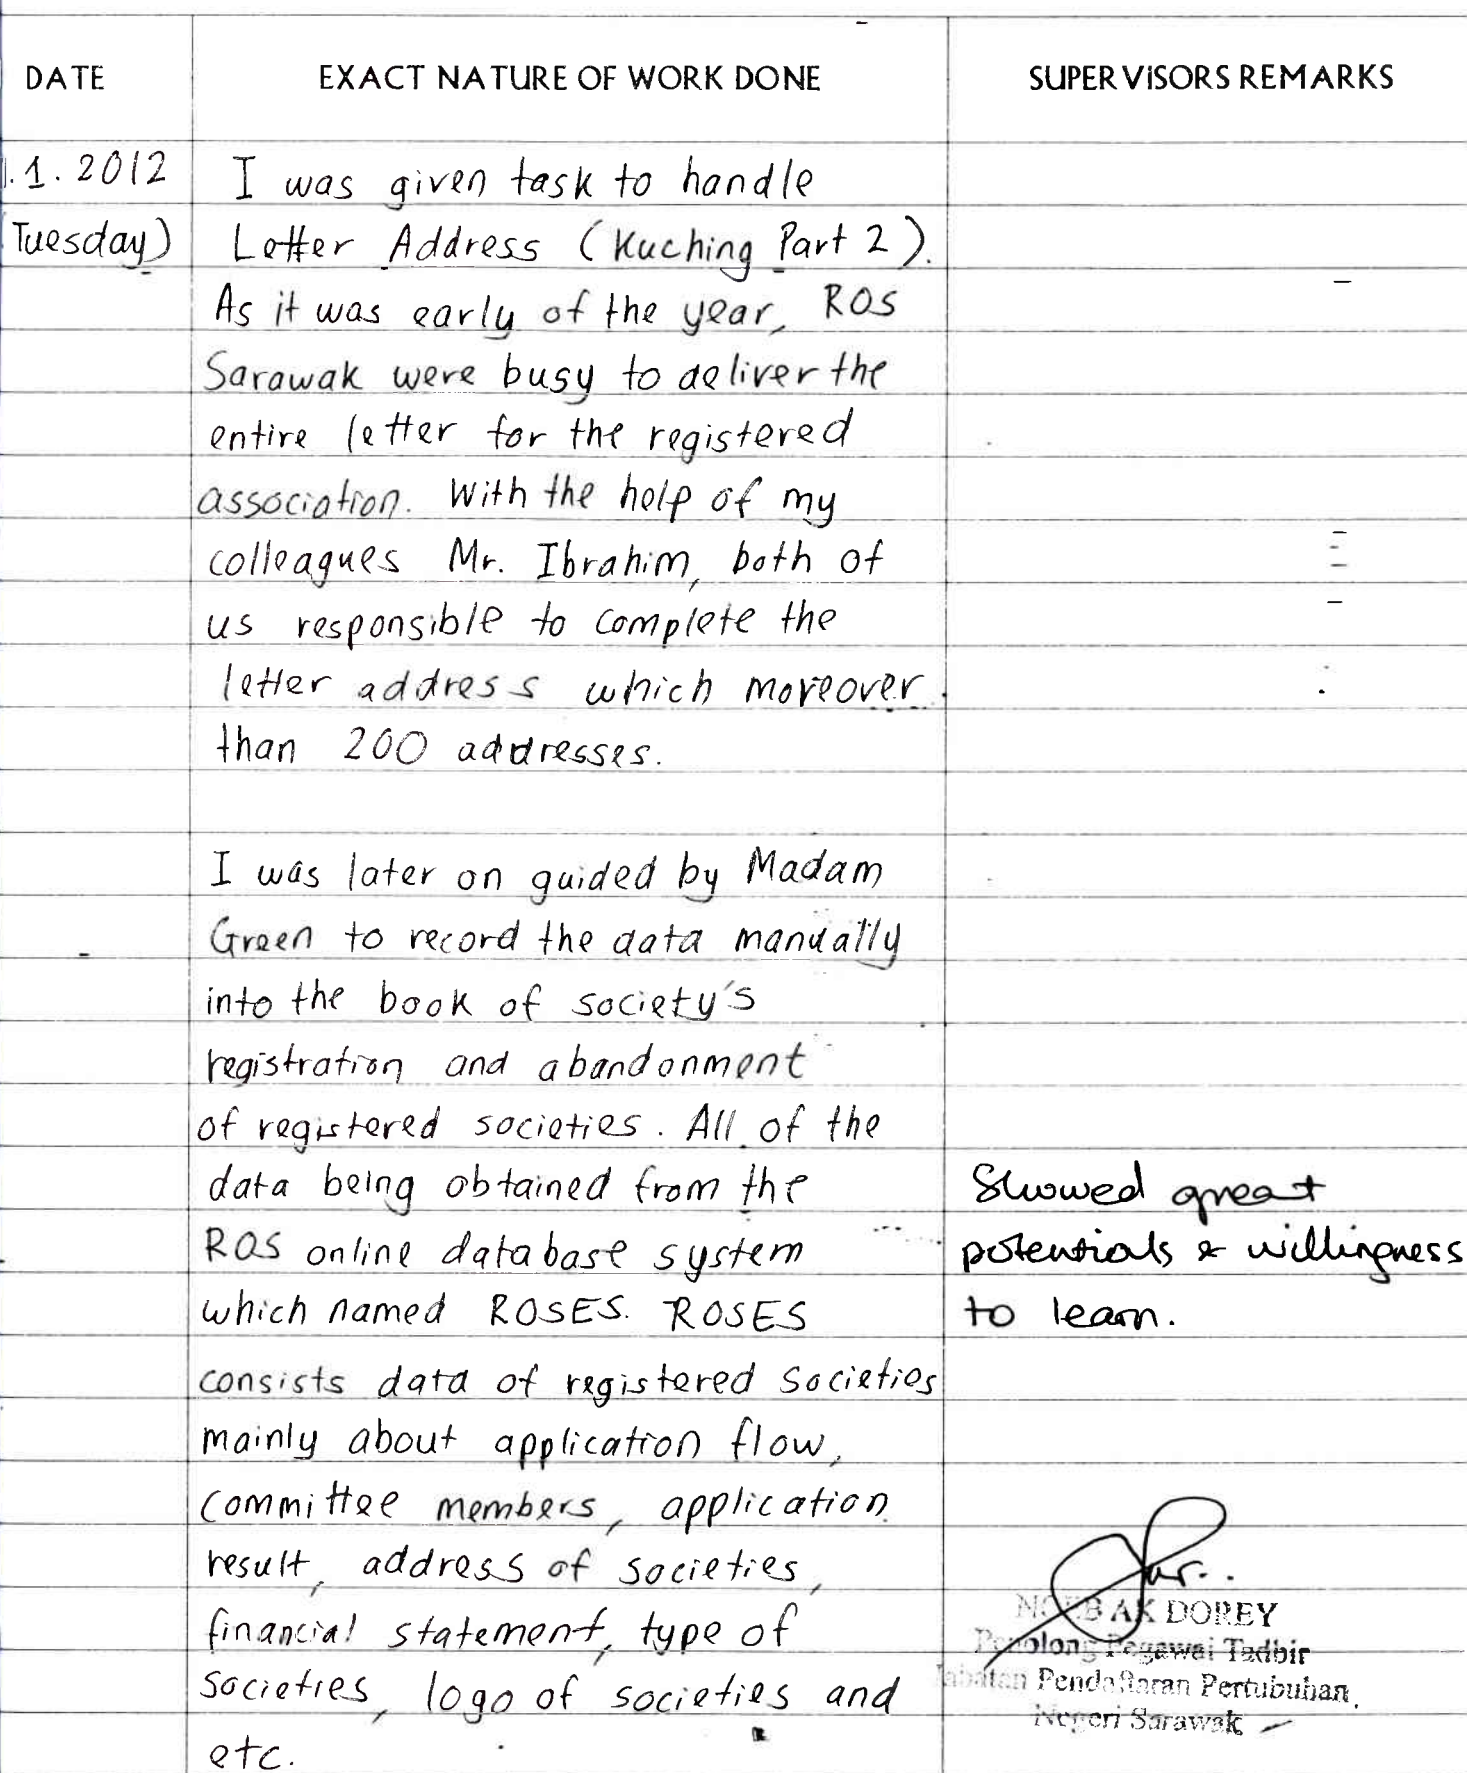 DATE EXACT NATURE OF WORK DONE SUPERVISORS REMARKS
.1.2012 I was given task to handle
Tuesday) Letter Address (Kuching Part 2).
As it was early of the year, ROS
Sarawak were busy to deliver the
entire letter for the registered
association. With the help of my
colleagues Mr. Ibrahim, both of
us responsible to complete the
letter address which moreover
than 200 addresses.
I was later on guided by Madam
Green to record the data manually
into the book of society's
registration and abandonment
of registered societies. All of the
data being obtained from the
ROS online database system
which named ROSES. ROSES
consists data of registered societies
mainly about application flow,
committee members, application
result, address of societies,
financial statement, type of
societies, logo of societies and
etc.
Showed great
potentials & willingness
to learn.
AK DOREY
Penolong Pegawai Tadbir
Jabatan Pendaftaran Pertubuhan
Negeri Sarawak